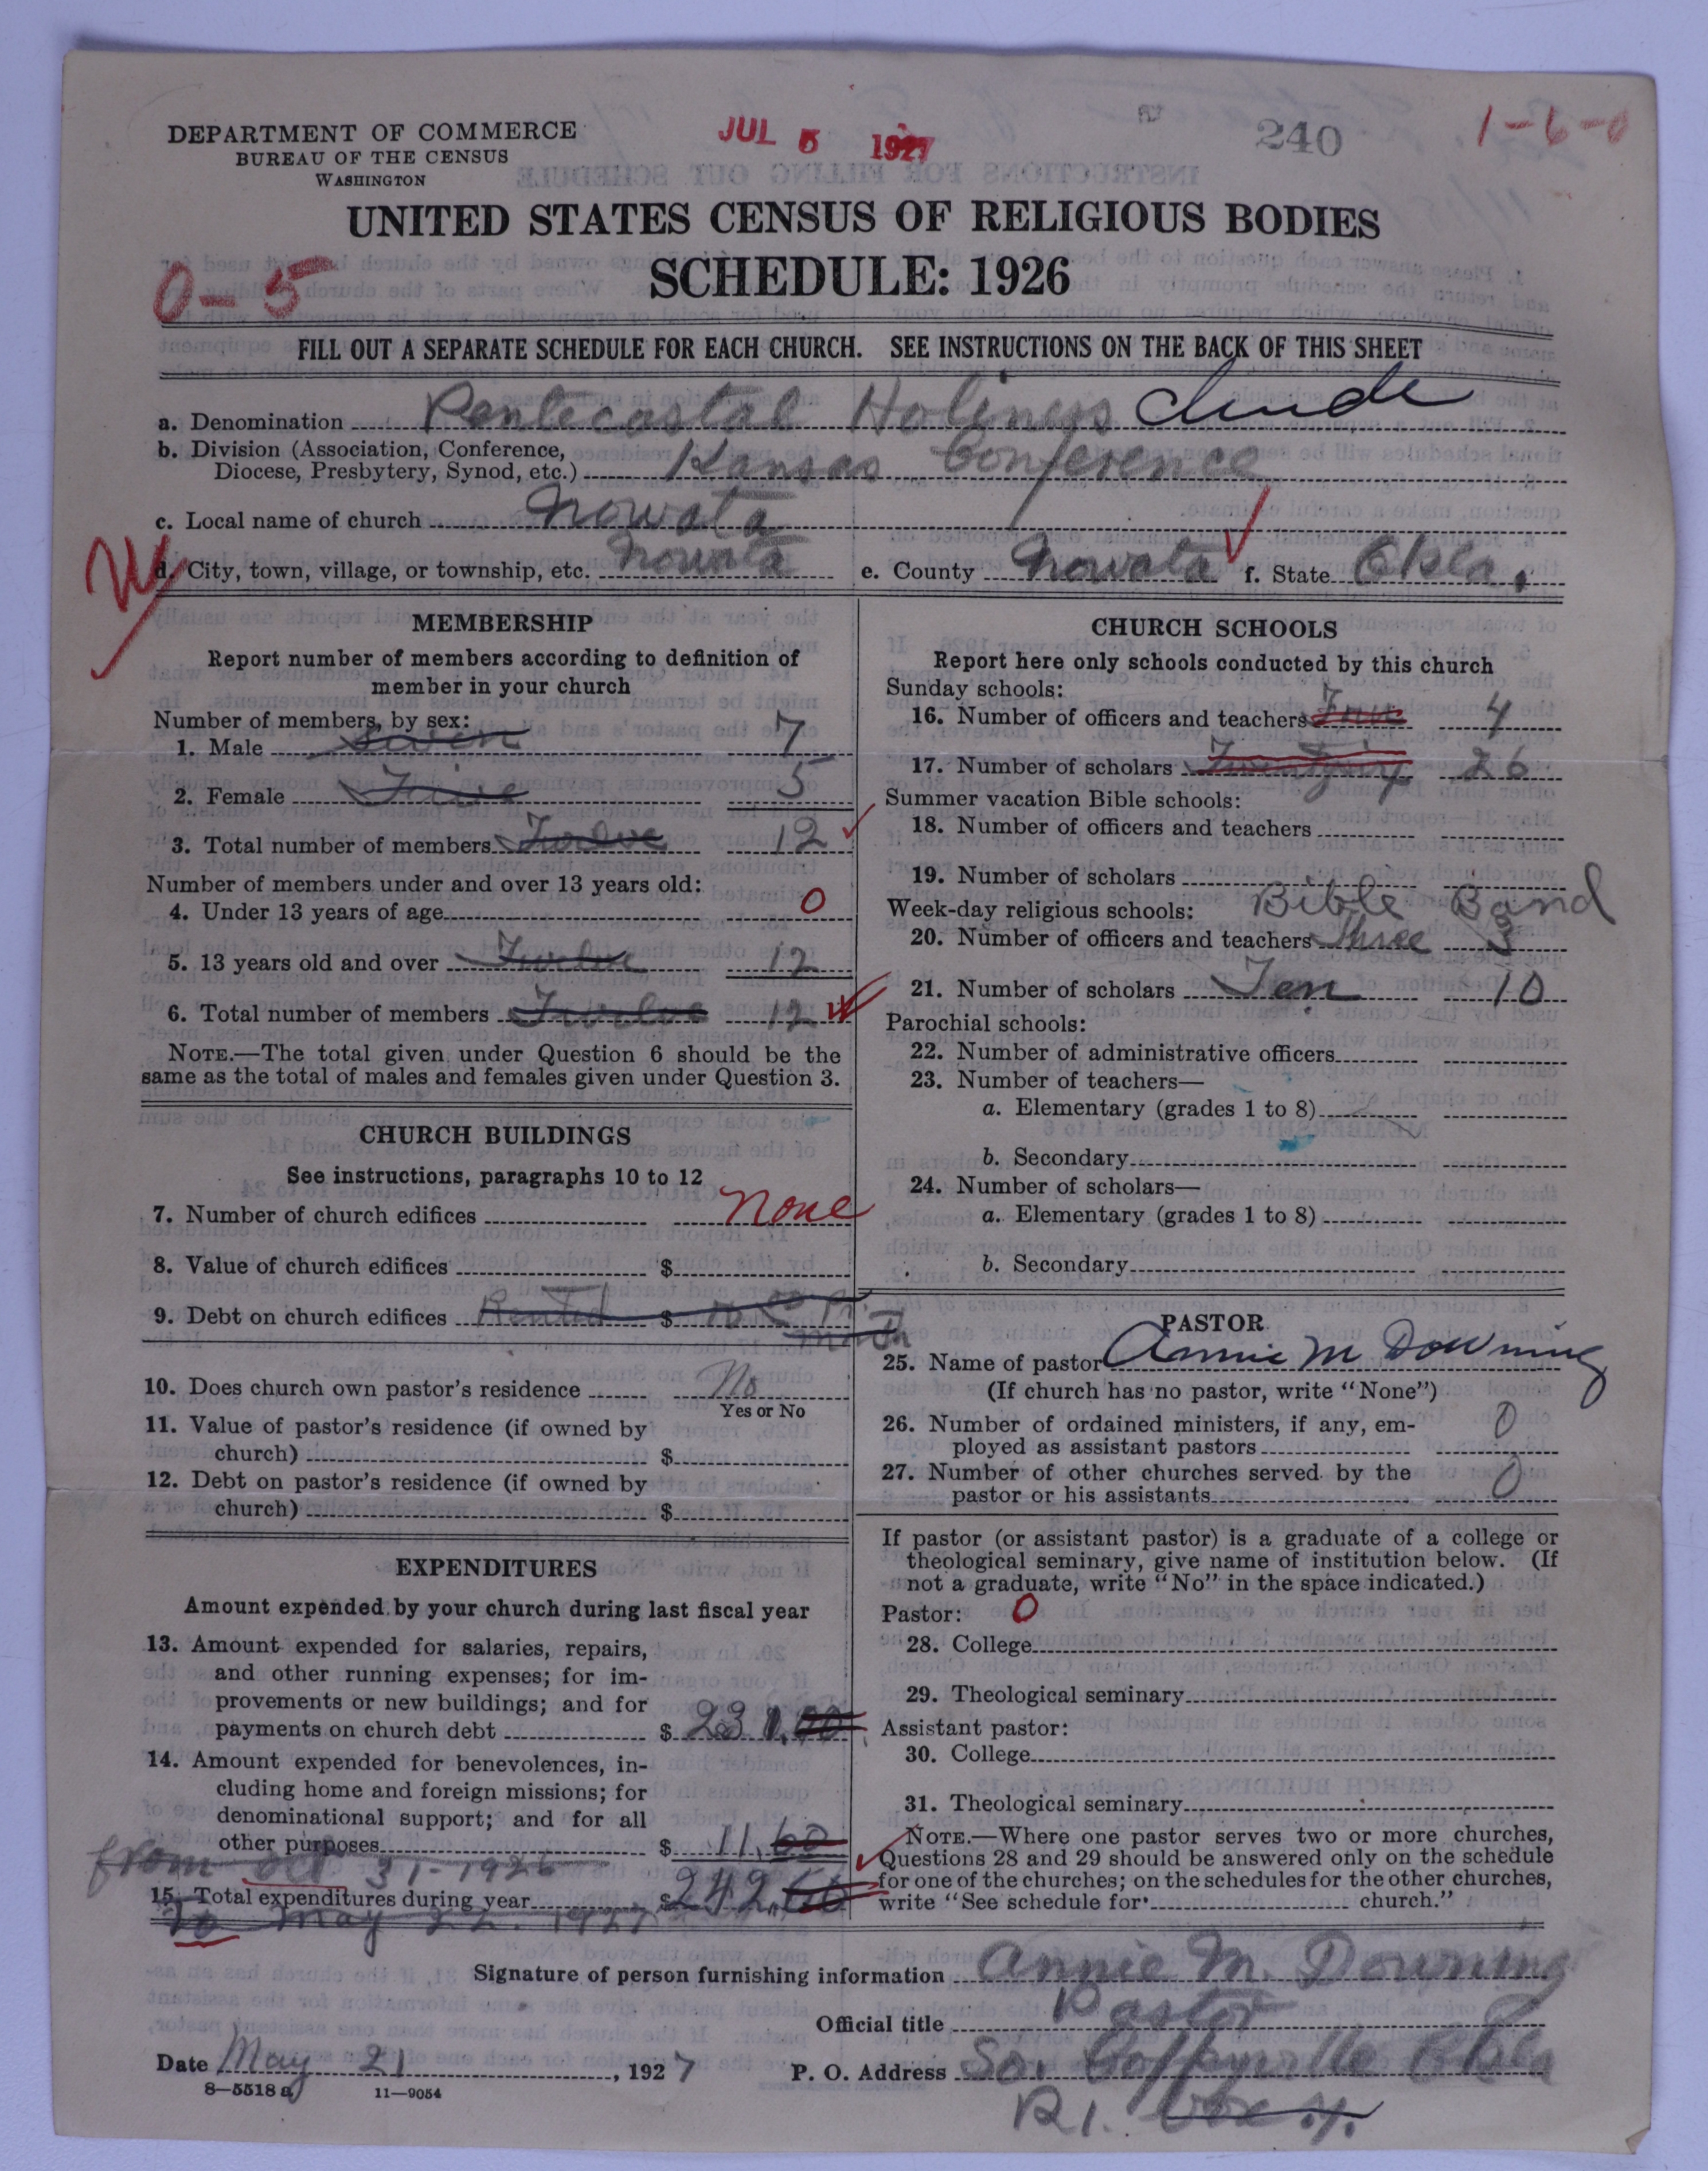 DEPARTMENT OF COMMERCE
BUREAU OF THE CENSUS
WASHINGTON
JUL 5 1927
240
1-6-0
UNITED STATES CENSUS OF RELIGIOUS BODIES
SCHEDULE: 1926
0-5
FILL OUT A SEPARATE SCHEDULE FOR EACH CHURCH. SEE INSTRUCTIONS ON THE BACK OF THIS SHEET
a. Denomination Pentecostal Holiness
b. Division (Association, Conference, Diocese, Presbytery, Synod, etc.) Kansas Conference
c. Local name of church Nowata
d. City, town, village, or township, etc. Nowata e. County Nowata f. State Okla.
MEMBERSHIP
Report number of members according to definition of
member in your church
Number of members, by sex:
1. Male Seven 7
2. Female Five 5
3. Total number of members Twelve 12
Number of members under and over 13 years old:
4. Under 13 years of age 0
5. 13 years old and over Twelve 12
6. Total number of members Twelve 12
NOTE.—The total given under Question 6 should be the
same as the total of males and females given under Question 3.
CHURCH BUILDINGS
See instructions, paragraphs 10 to 12
7. Number of church edifices None
8. Value of church edifices $
9. Debt on church edifices Rented $ 10 00 Pr.
Month
10. Does church own pastor's residence No
Yes or No
11. Value of pastor's residence (if owned by
church) $
12. Debt on pastor's residence (if owned by
church) $
EXPENDITURES
Amount expended by your church during last fiscal year
13. Amount expended for salaries, repairs,
and other running expenses; for im-
provements or new buildings; and for
payments on church debt $ 231.00
14. Amount expended for benevolences, in-
cluding home and foreign missions; for
denominational support; and for all
other purposes $ 11.60
from Oct 31-1926
15. Total expenditures during year $ 242.60
to May 22. 1927
CHURCH SCHOOLS
Report here only schools conducted by this church
Sunday schools:
16. Number of officers and teachers Four 4
17. Number of scholars 26
Summer vacation Bible schools:
18. Number of officers and teachers
19. Number of scholars
Week-day religious schools: Bible Band
20. Number of officers and teachers Three 3
21. Number of scholars Ten 10
Parochial schools:
22. Number of administrative officers
23. Number of teachers—
a. Elementary (grades 1 to 8)
b. Secondary
24. Number of scholars—
a. Elementary (grades 1 to 8)
b. Secondary
PASTOR
25. Name of pastor Annie M Downing
(If church has no pastor, write "None")
26. Number of ordained ministers, if any, em-
ployed as assistant pastors 0
27. Number of other churches served by the
pastor or his assistants 0
If pastor (or assistant pastor) is a graduate of a college or
theological seminary, give name of institution below. (If
not a graduate, write "No" in the space indicated.)
Pastor: 0
28. College
29. Theological seminary
Assistant pastor:
30. College
31. Theological seminary
NOTE.—Where one pastor serves two or more churches,
Questions 28 and 29 should be answered only on the schedule
for one of the churches; on the schedules for the other churches,
write "See schedule for church."
Signature of person furnishing information Annie M. Downing
Official title Pastor
Date May 21, 1927 P. O. Address So. Coffeyville Okla
R1. Box 4.
8—5518 a 11—9054